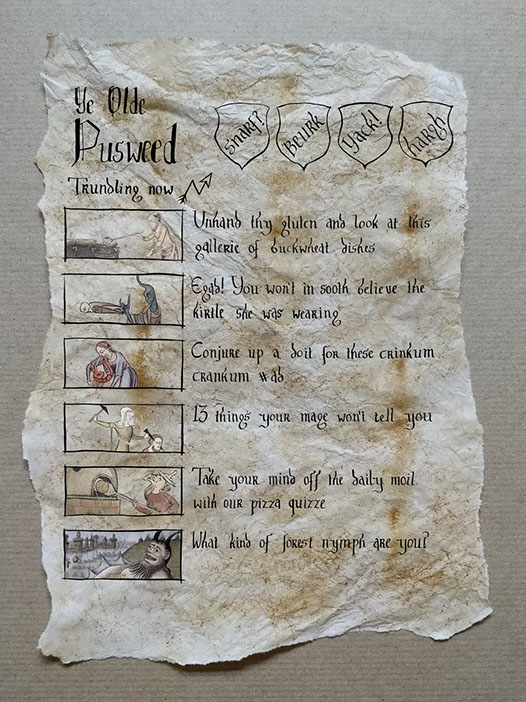 Ye Olde
Pusweed
snarf?
Beurk
yack!
hargh
Trundling now
Unhand thy gluten and look at this
gallerie of buckwheat dishes
Egad! You won't in sooth believe the
kirtle she was wearing
Conjure up a doit for these crinkum
crankum #ad
13 things your mage won't tell you
Take your mind off the daily moil
with our pizza quizze
What kind of forest nymph are you?